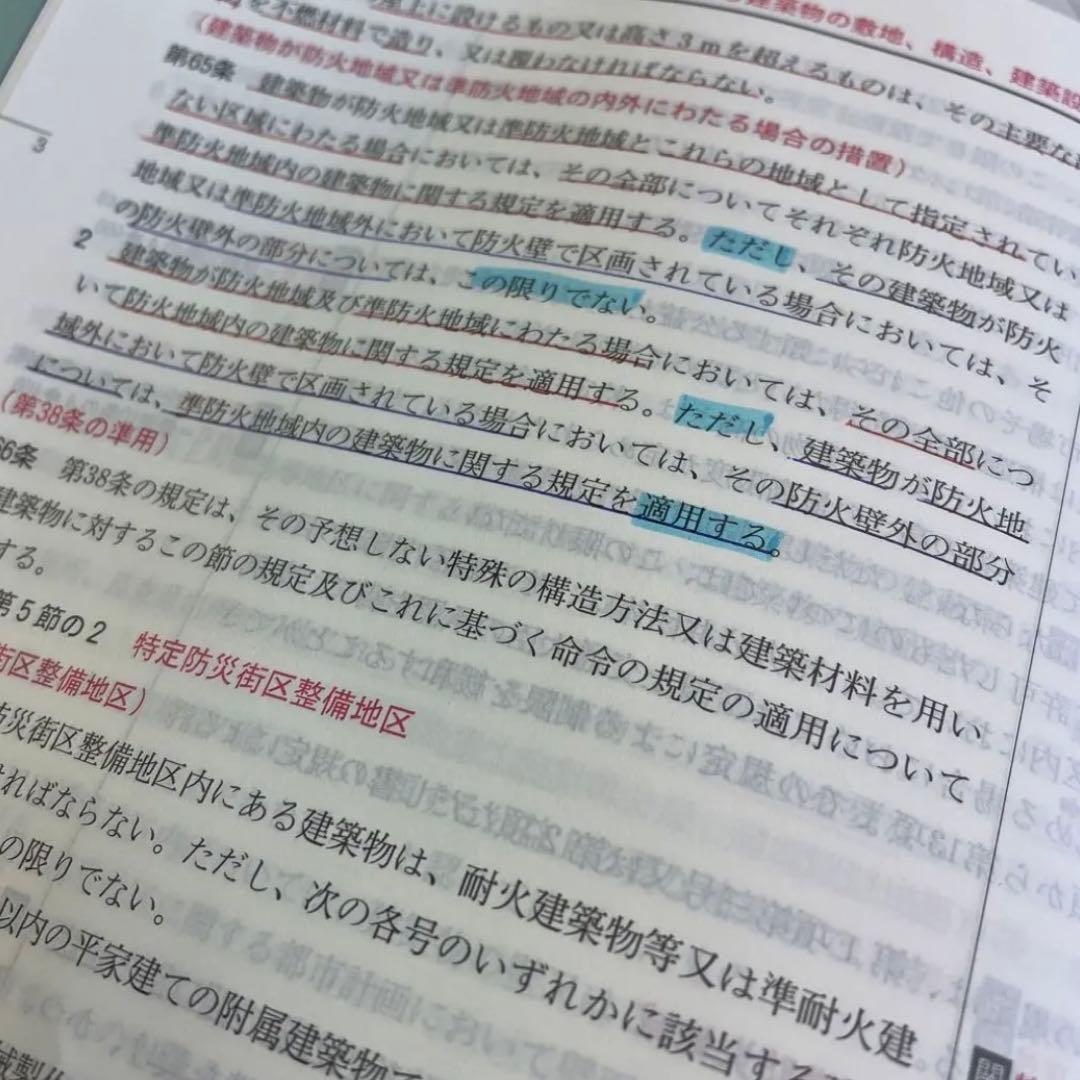 建築物の敷地、構造、建築設
屋上に設けるもの又は高さ3mを超えるものは、その主要な
を不燃材料で造り、又は覆わなければならない。
(建築物が防火地域又は準防火地域の内外にわたる場合の措置)
第65条 建築物が防火地域又は準防火地域とこれらの地域として指定されてい
ない区域にわたる場合においては、その全部についてそれぞれ防火地域又は
準防火地域内の建築物に関する規定を適用する。ただし、その建築物が防火
地域又は準防火地域外において防火壁で区画されている場合においては、そ
の防火壁外の部分については、この限りでない。
2 建築物が防火地域及び準防火地域にわたる場合においては、その全部につ
いて防火地域内の建築物に関する規定を適用する。ただし、建築物が防火地
域外において防火壁で区画されている場合においては、その防火壁外の部分
については、準防火地域内の建築物に関する規定を適用する。
(第38条の準用)
66条 第38条の規定は、その予想しない特殊の構造方法又は建築材料を用い
建築物に対するこの節の規定及びこれに基づく命令の規定の適用について
する。
第5節の2 特定防災街区整備地区
街区整備地区)
防災街区整備地区内にある建築物は、耐火建築物等又は準耐火建
ければならない。ただし、次の各号のいずれかに該当する
の限りでない。
以内の平家建ての附属建築物で
3